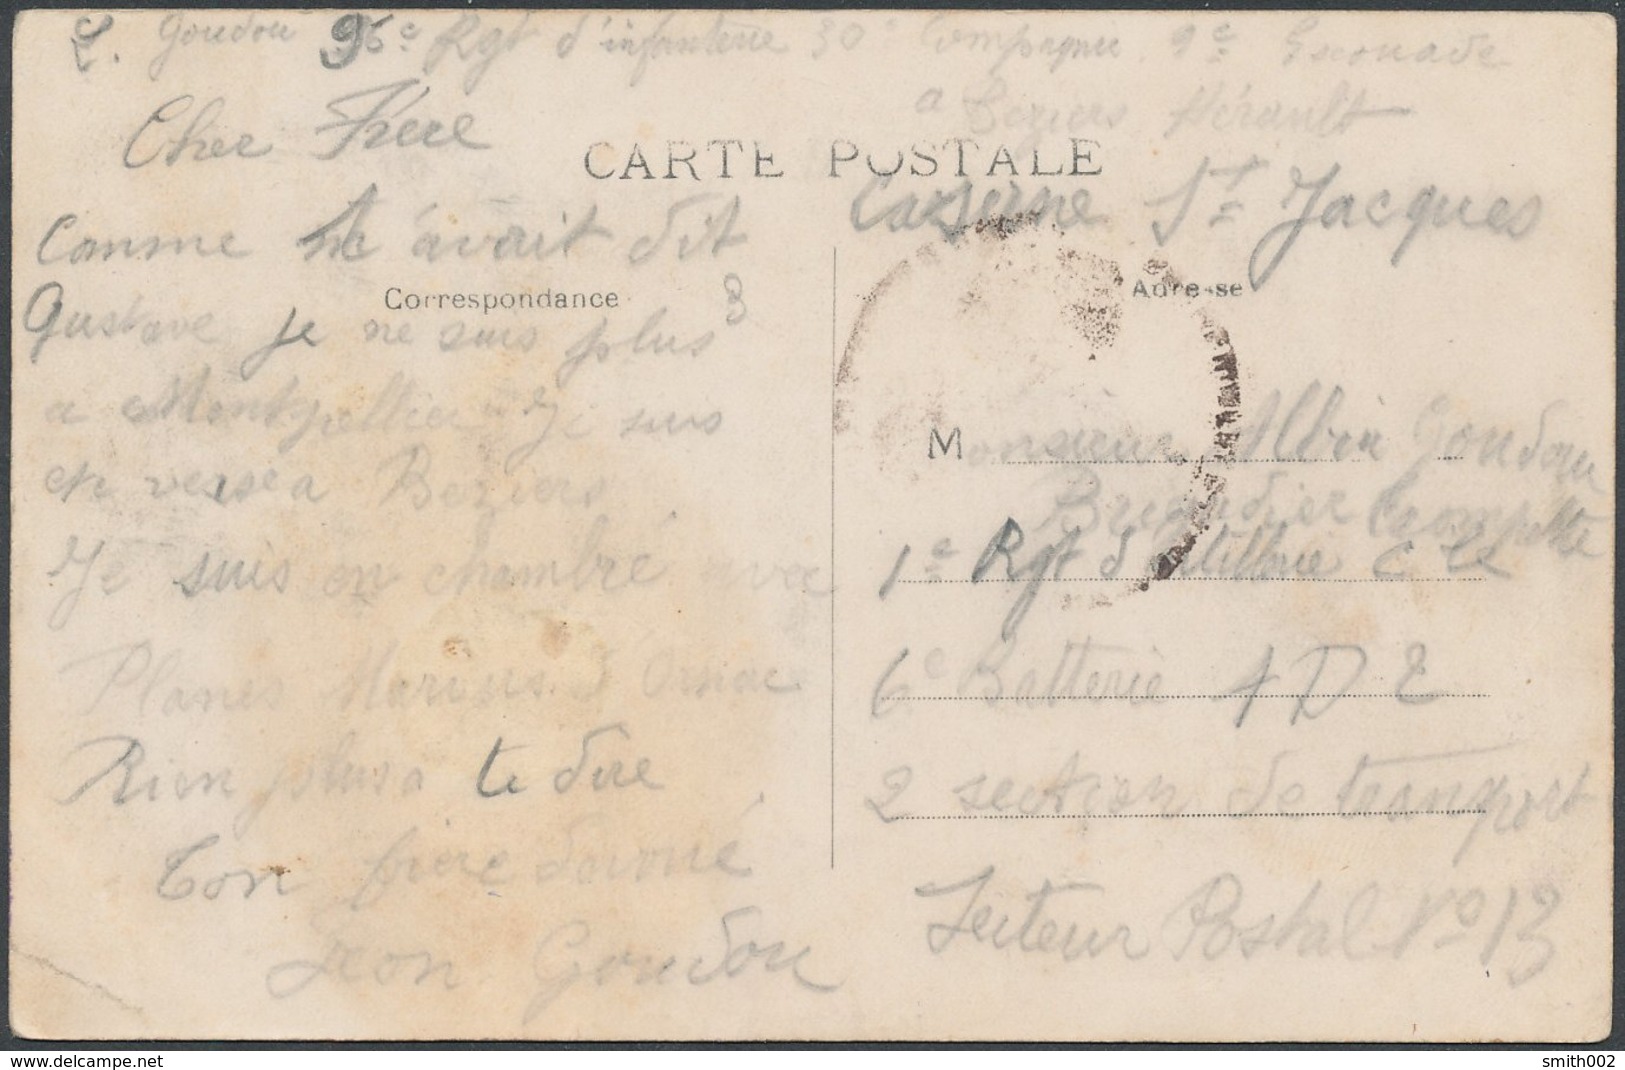 Goudou 96e Rgt d'infanterie 30e Compagnie 9e Escouade
a Beziers Hérault
Caserne St Jacques
CARTE POSTALE
Correspondance
Adresse
Cher Frère
Comme te l'avait dit
Gustave je ne suis plus
a Montpellier Je suis
en verse a Beziers
Je suis en chambré avec
Planes Marius d'Ornac
Rien plus a te dire
Ton frère devoué
Jean Goudou
Monsieur Albin Goudou
Brigadier
1e Rgt d'Artillerie
6e Batterie A D 2
2 section de transport
Secteur Postal No 13
smith002